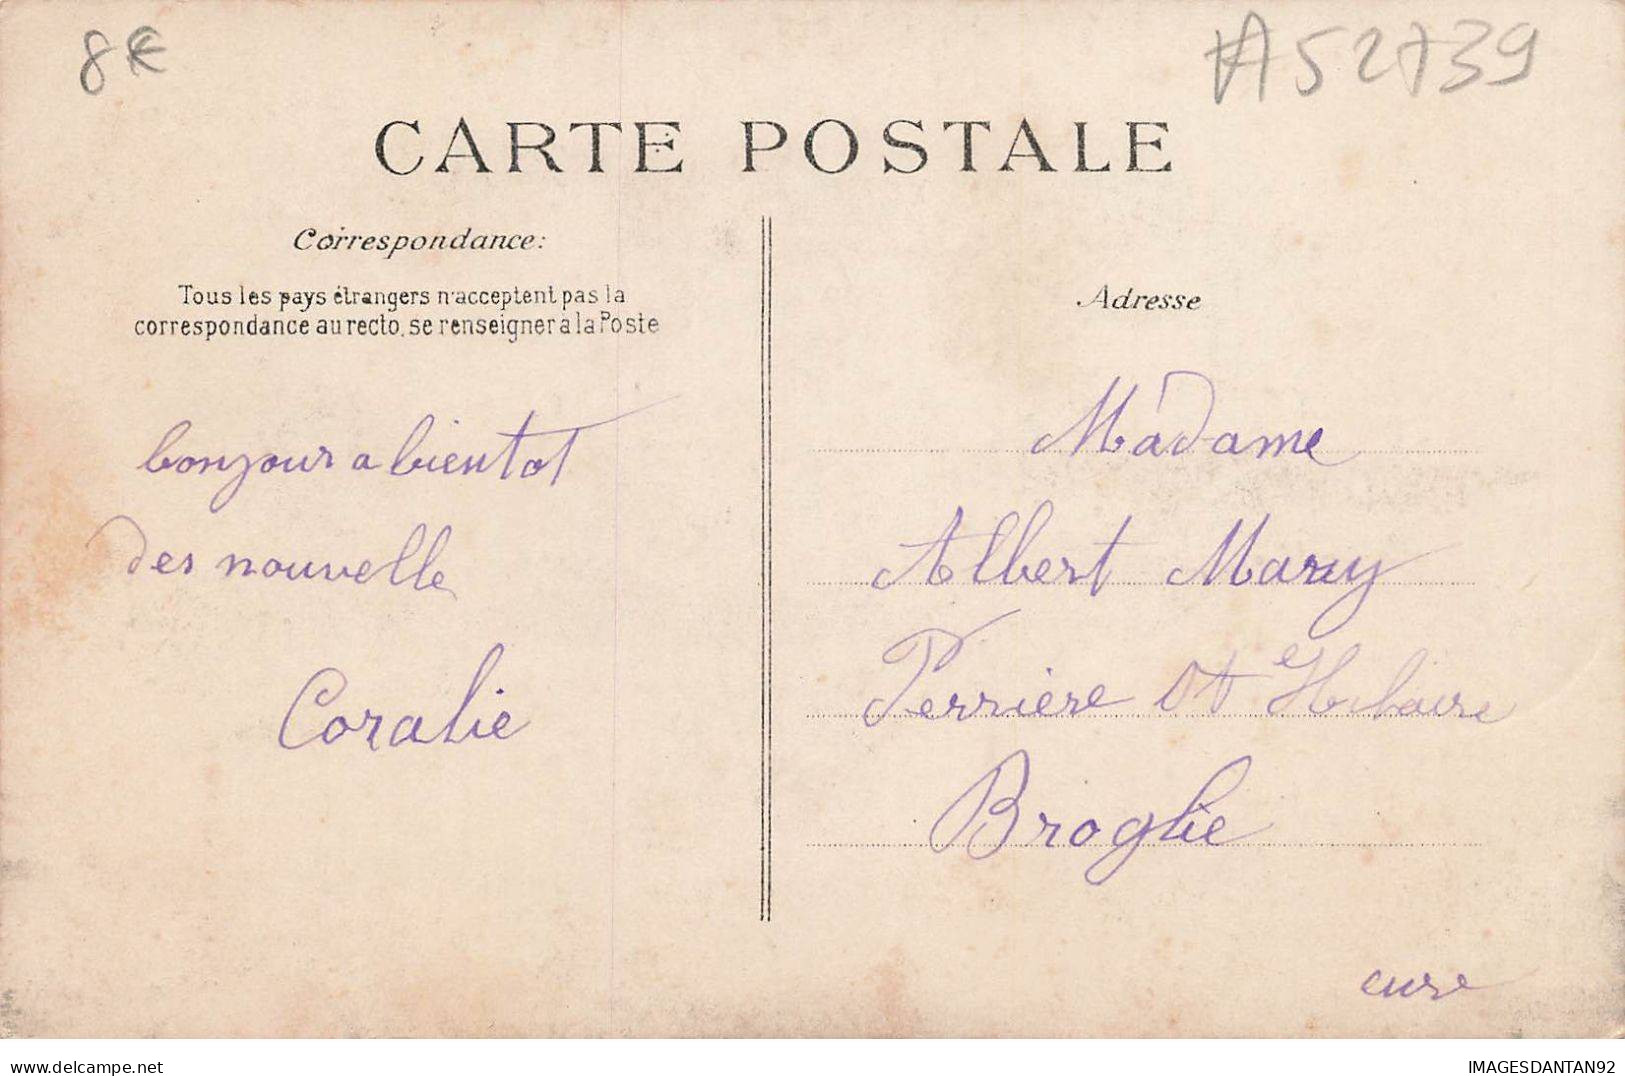 8€
A52739
CARTE POSTALE
Correspondance:
Tous les pays étrangers n'acceptent pas la
correspondance au recto, se renseigner à la Poste
bonjour a bientot
des nouvelle
Coralie
Adresse
Madame
Albert Mary
Ferriere St Hilaire
Broglie
eure
IMAGESDANTAN92